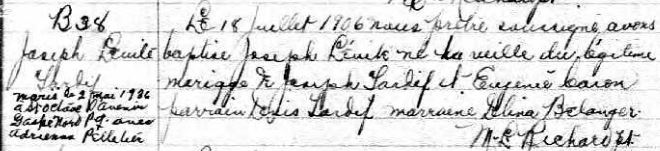 B38
Joseph Emile
Tardif
marié le 2 mai 1936
a St Octave d'avenir
Gaspé Nord P.Q. avec
Adrienne Pelletier
Le 18 Juillet 1906 nous prêtre soussigné avons
baptisé Joseph Emile né la veille du légitime
mariage de Joseph Tardif et Eugenie Caron
parrain Tardif marraine Belanger
Richard ptr